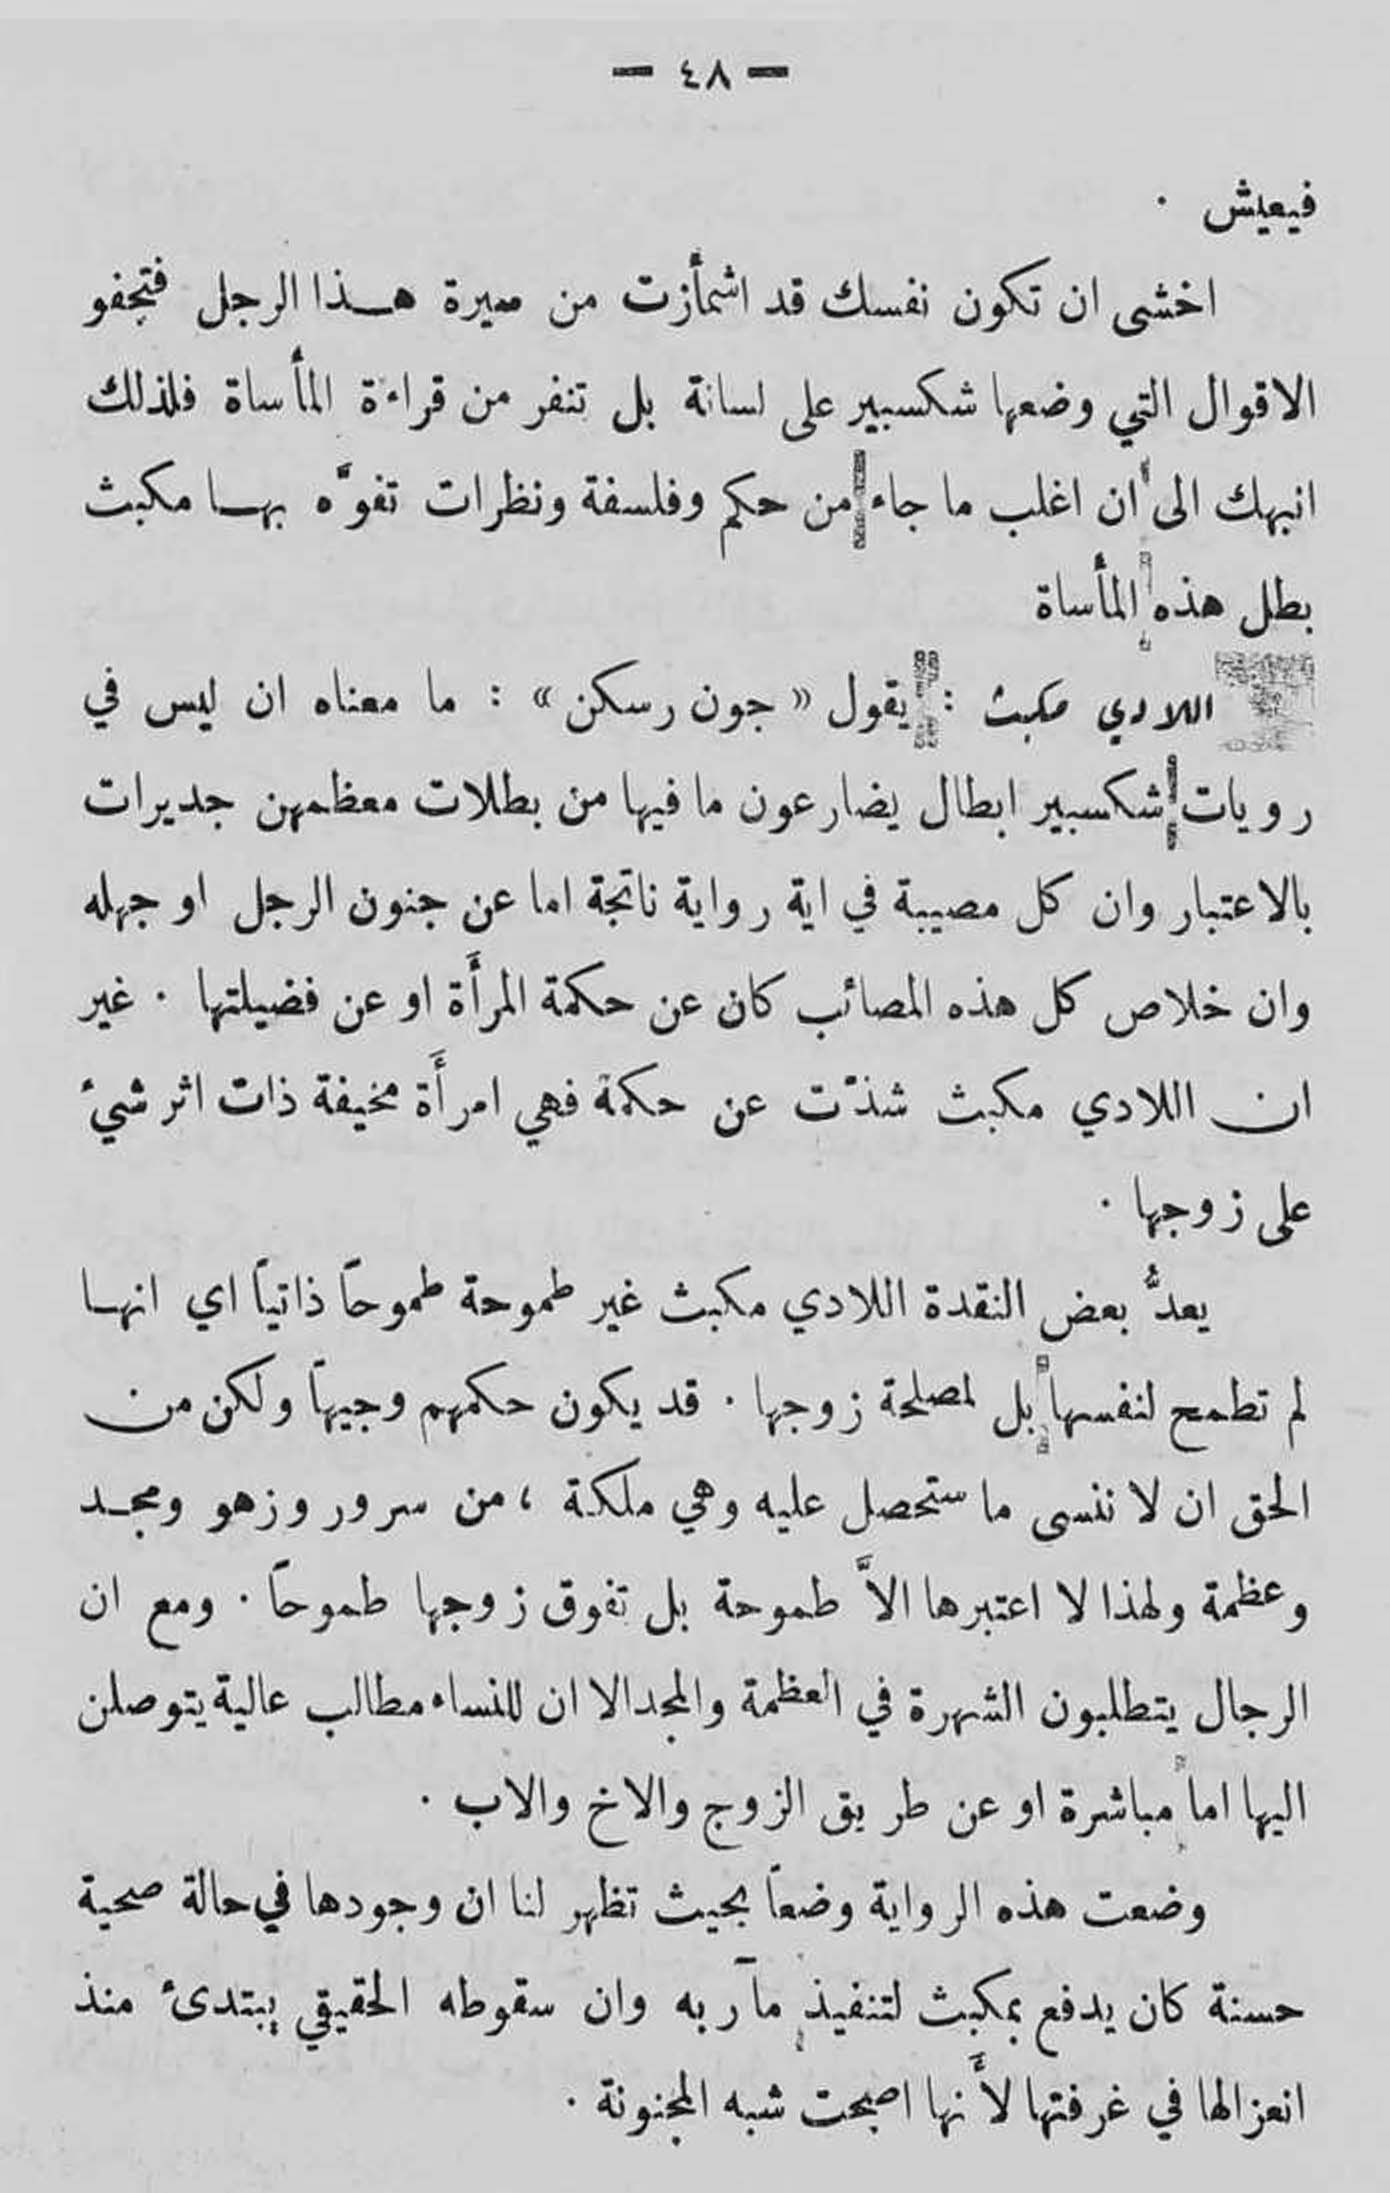 — ٤٨ —
فيعيش .
اخشى ان تكون نفسك قد اشمأزت من سيرة هـذا الرجل فتجفو
الاقوال التي وضعها شكسبير على لسانة بل تنفر من قراءة المأساة فلذلك
انبهك الى ان اغلب ما جاء من حكم وفلسفة ونظرات تفوَّه بهـا مكبث
بطل هذه المأساة
اللادي مكبث : يقول « جون رسكن » : ما معناه ان ليس في
رويات شكسبير ابطال يضارعون ما فيها من بطلات معظمهن جديرات
بالاعتبار وان كل مصيبة في اية رواية ناتجة اما عن جنون الرجل او جهله
وان خلاص كل هذه المصائب كان عن حكمة المرأَة او عن فضيلتها . غير
ان اللادي مكبث شذّت عن حكمة فهي امرأَة مخيفة ذات اثر شيءٍ
على زوجها .
يعدُّ بعض النقدة اللادي مكبث غير طموحة طموحاً ذاتياً اي انهـا
لم تطمح لنفسها بل لمصلحة زوجها . قد يكون حكمهم وجيهاً ولكن من
الحق ان لا ننسى ما ستحصل عليه وهي ملكة ، من سرور وزهو ومجـد
وعظمة ولهذا لا اعتبرها الاَّ طموحة بل تفوق زوجها طموحاً . ومع ان
الرجال يتطلبون الشهرة في العظمة والمجد الا ان للنساء مطالب عالية يتوصلن
اليها اما مباشرة او عن طريق الزوج والاخ والاب .
وضعت هذه الرواية وضعاً بحيث تظهر لنا ان وجودها في حالة صحية
حسنة كان يدفع بمكبث لتنفيذ مآربه وان سقوطه الحقيقي يبتدىء منذ
انعزالها في غرفتها لأَنها اصبحت شبه المجنونة .